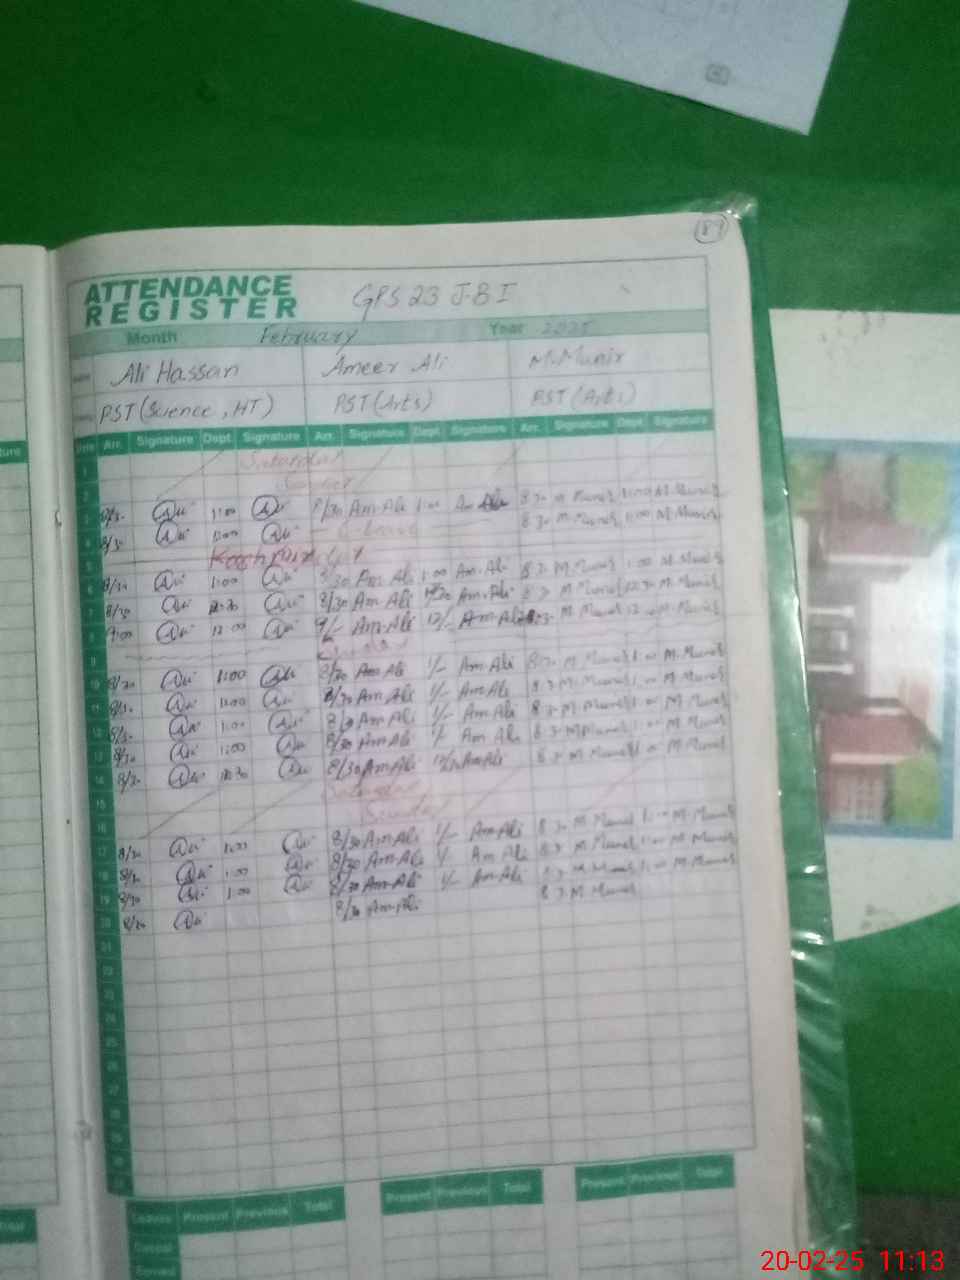 87
ATTENDANCE
REGISTER
GPS 23 J.B I
Month February Year 2025
Ali Hassan Ameer Ali M.Munir
PST (Science, HT) PST (Arts) PST (Arts)
Arr. Signature Dept. Signature Arr. Signature Dept. Signature Arr. Signature Dept. Signature
1 Saturday
2 Sunday
3 8/30 1:00 8/30 Am.Ali 1:00 Am Ali 8 30 M Munir 1:00 M.Munir
4 8/30 1:00 8 30 M.Munir 1:00 M.Munir
5 Kashmir day
6 8/30 1:00 8/30 Am Ali 1:00 Am.Ali 8 30 M Munir 1:00 M.Munir
7 8/30 12:30 8/30 Am.Ali 12/30 Am.Ali M Munir 12:30 M.Munir
8 9:00 12:00 9/- Am.Ali 12/- Am.Ali M.Munir 12:00 M.Munir
9 Sunday
10 8/30 1:00 8/30 Am.Ali 1/- Am.Ali 8 30 M.Munir 1:00 M.Munir
11 8/30 1:00 8/30 Am.Ali 1/- Am Ali 8 30 M.Munir 1:00 M.Munir
12 8/30 1:00 8/30 Am.Ali 1/- Am Ali 8 30 M.Munir 1:00 M.Munir
13 8/30 1:00 8/30 Am.Ali 1/- Am Ali 8 30 M.Munir 1:00 M.Munir
14 8/30 12:30 8/30 Am.Ali 12/30 Am.Ali 8 30 M.Munir M.Munir
15 Saturday
16 Sunday
17 8/30 1:00 8/30 Am.Ali 1/- Am.Ali 8 30 M Munir 1:00 M.Munir
18 8/30 1:00 8/30 Am.Ali 1/- Am Ali 8 30 M Munir 1:00 M.Munir
19 8/30 1:00 8/30 Am.Ali 1/- Am.Ali 8 30 M Munir 1:00 M.Munir
20 8/30 8/30 Am.Ali 8 30 M Munir
21
22
23
24
25
26
27
28
29
30
31
Leaves Present Previous Total Present Previous Total Present Previous Total
Casual
Earned
20-02-25 11:13